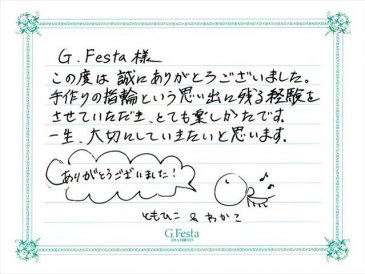 G.Festa 様
この度は誠にありがとうございました。
手作りの指輪という思い出に残る経験を
させていただき、とても楽しかったです。
一生、大切にしていきたいと思います。
ありがとうございました!
ともひこ & わかこ
G.Festa